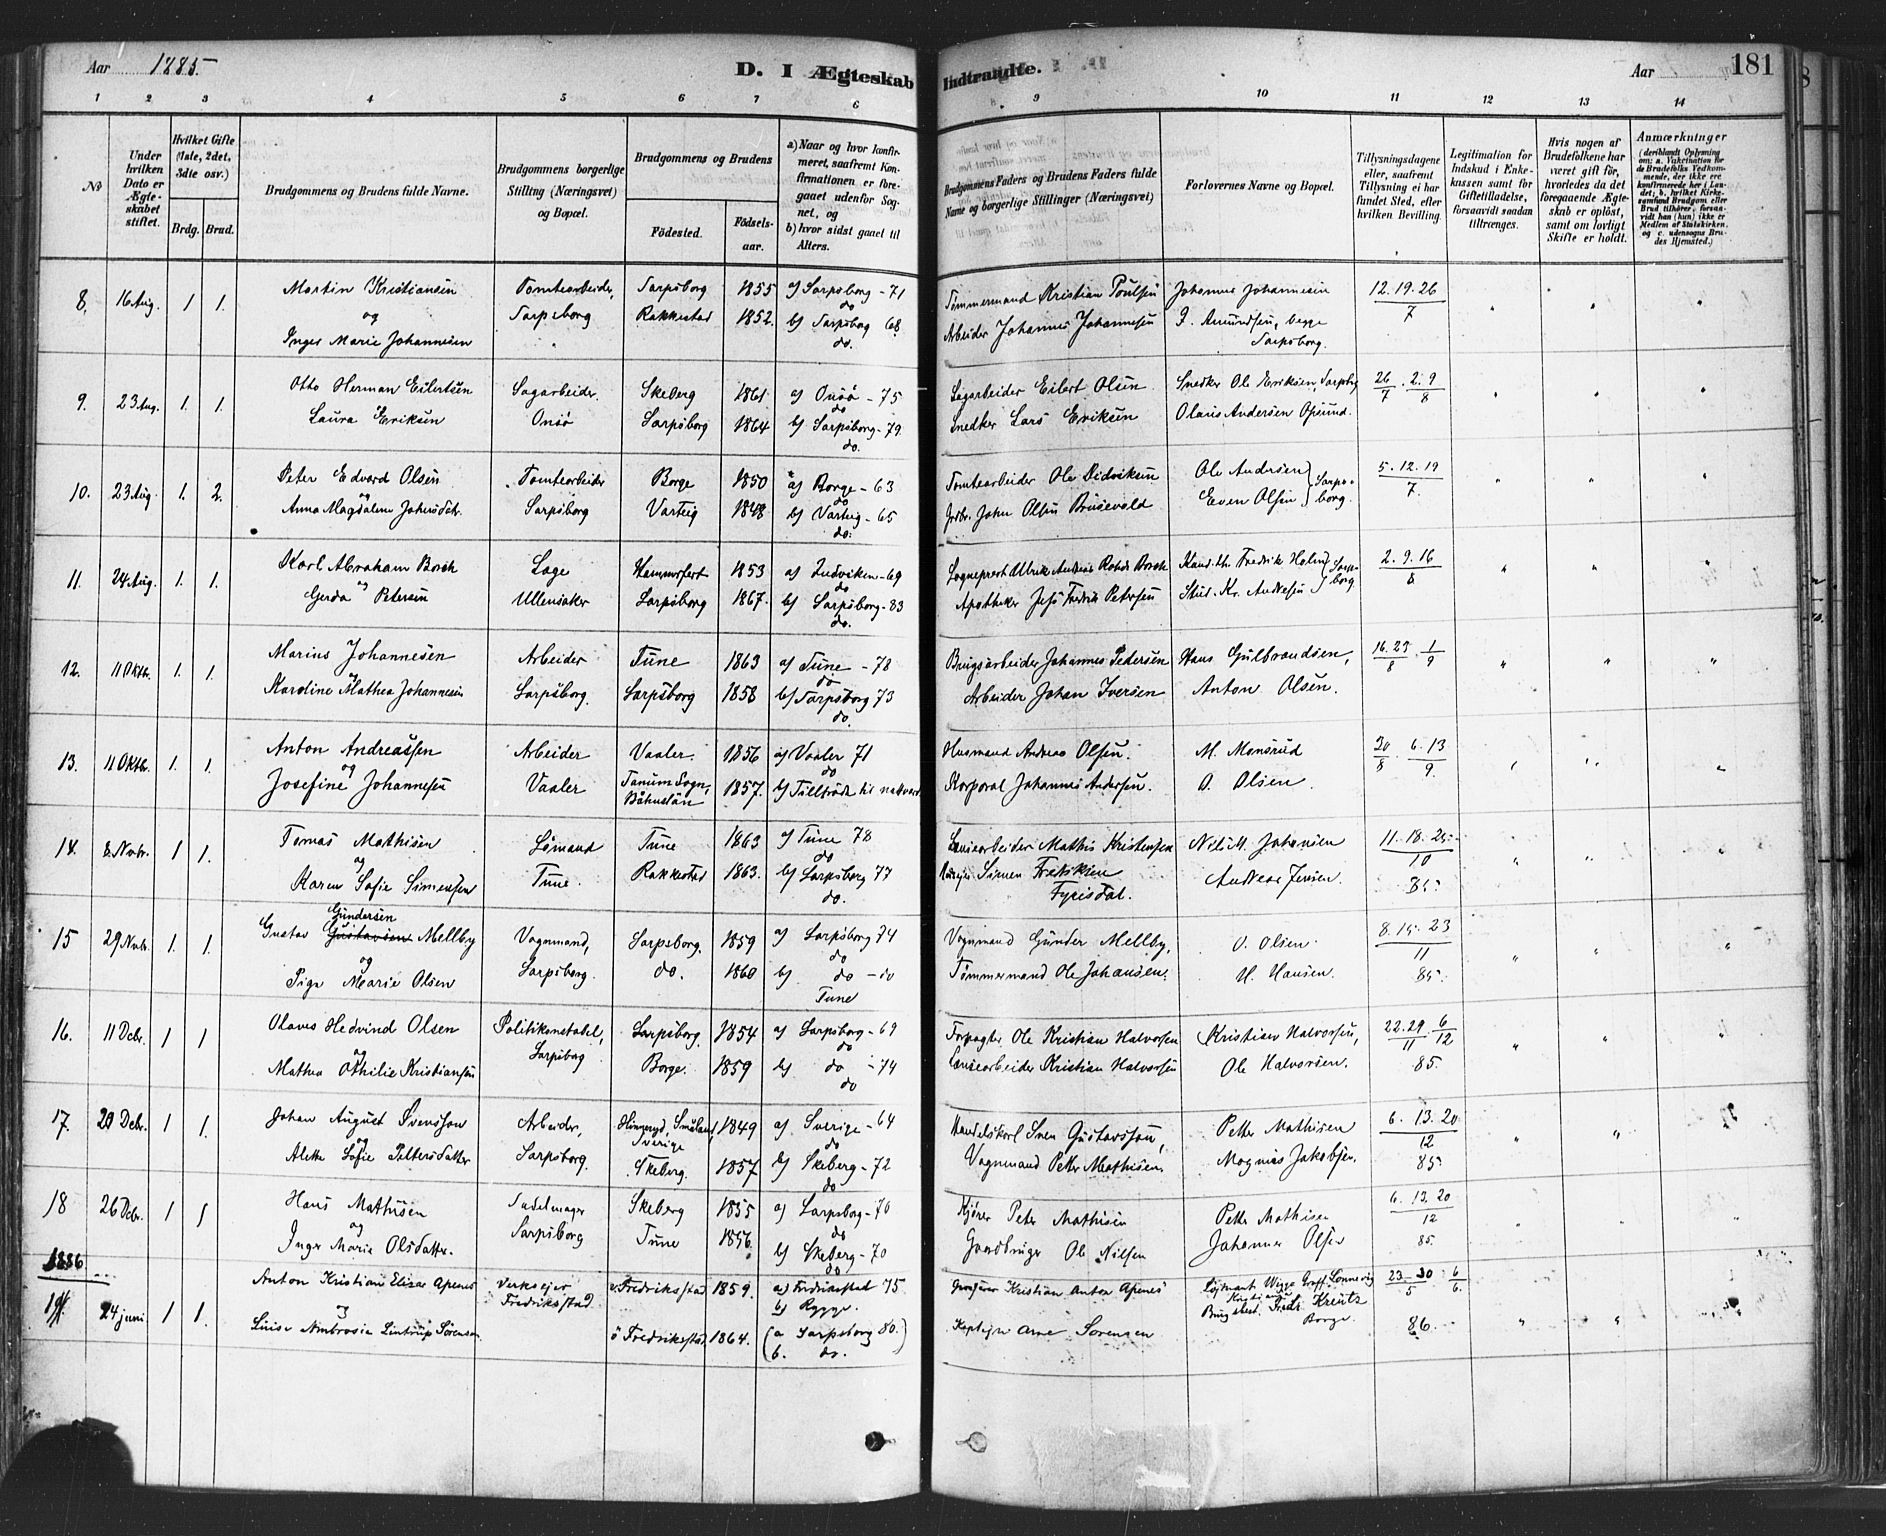 Aar 1885.
D. I Ægteskab Indtraadte.
Aar 181
1 2 3 4 5 6 7 8 9 10 11 12 13 14
No
Under hvilken Dato er Ægteskabet stiftet.
Hvilket Gifte (1ste, 2det, 3die osv.)
Brdg. Brud.
Brudgommens og Brudens fulde Navne.
Brudgommens borgerlige Stilling (Næringsvei) og Bopæl.
Brudgommens og Brudens
Födested. Födselsaar.
a) Naar og hvor konfirmeret, saafremt Konfirmationen er foregaaet udenfor Sognet, og
b) hvor sidst gaaet til Alters.
Brudgommens Faders og Brudens Faders fulde Navne og borgerlige Stillinger (Næringsvei)
Forlovernes Navne og Bopæl.
Tillysningsdagene eller, saafremt Tillysning ei har fundet Sted, efter hvilken Bevilling.
Legitimation for Indskud i Enkekassen samt for Giftetilladelse, forsaavidt saadan tiltrænges.
Hvis nogen af Brudefolkene har været gift för, hvorledes da det foregaaende Ægteskab er oplöst, samt om lovligt Skifte er holdt.
Anmærkninger (deriblandt Oplysning om: a. Vakcination for de Brudefolks Vedkommende, der ikke ere konfirmerede her i Landet; b. hvilket Kirkesamfund Brudgom eller Brud tilhörer, forsaavidt han (hun) ikke er Medlem af Statskirken, og c. udensogns Brudes Hjemsted.)
8, 16 Aug. 1 1. Martin Kristiansen Tomtearbeider, Sarpsborg 1855 a) Sarpsborg - 71 Tømmermand Kristian Poulsen Johannes Johannesen 12. 19. 26
og Sarpsborg Rakkestad 1852. do b) Sarpsborg 68 Arbeider Johannes Johannesen Amundsen, begge 7
Inger Marie Johannesen do. Sarpsborg.
9. 23 Aug. 1. 1. Otto Herman Eilertsen Sagarbeider. Skeberg 1861. a) Onsø - 75 Sagarbeider Eilert Olsen Snedker Ole Eriksen, Sarpsbg 26/7 . 2. 9/8
Laura Eriksen Onsø Sarpsborg 1864 do b) Sarpsborg - 79. Snedker Lars Eriksen Olaus Andersen Opsund.
do.
10. 23 Aug. 1. 2. Peter Edvard Olsen Tomtearbeider Borge 1850 a) Borge - 63 Tomtearbeider Ole Didriksen Ole Andersen 5. 12. 19
og Anna Magdalena Johnsdtr. Sarpsborg Varteig 1848 do b) Varteig - 65 John Olsen Brusevold Even Olsen Sarpsborg. 7.
do.
11. 24 Aug. 1. 1. Karl Abraham Borch Læge Hammerfest 1853 a) Indviken - 69 Sogneprest Ulrik Andreas Borch Kand. th. Fredrik Holm Sarpsborg 2. 9. 16
og Gerda Petersen Ullensaker Sarpsborg 1867. do b) Sarpsborg - 83 Apotheker Fredrik Petersen Stud. Kr. Andresen 8
do.
12. 11 Oktb. 1. 1. Marius Johannesen Arbeider Tune 1863 a) Tune - 78 Brugsarbeider Johannes Pedersen Hans Gulbrandsen, 16. 23/8 . 1/9
og Karoline Mathea Johannesen Sarpsborg. Sarpsborg 1858 do b) Sarpsborg 73 Arbeider Johan Iversen Anton Olsen.
do.
13. 11 Oktb. 1. 1. Anton Andreassen Arbeider Vaaler. 1856 a) Vaaler 71 Husmand Andreas Olsen. M. Monsrud 30/8 . 6. 13/9.
og Josefine Johannesen Vaaler Tanum Sogn, Båhuslän 1857. do b) Tillträdt til nattverd Korporal Johannes Andersen. O. Olsen
14. 8. Novbr. 1 1. Tomas Mathisen Sømand Tune 1863 a) Tune 78 Mathis Kristensen Nils M. Johansen 11. 18. 25
og Karen Sofie Simensen Tune. Rakkestad 1863. do b) Sarpsborg 77 Simen Fredriksen Andreas Jensen. 10 85.
do. Fyrisdal.
15 29 Novbr. 1. 1. Gustav Gundersen Gustavsen Mellby Vognmand, Sarpsborg. 1859 a) Sarpsborg 74 Vognmand Gunder Mellby, O. Olsen 8. 15. 23
og Pige Marie Olsen Sarpsborg. do. 1860 do b) do - do Tømmermand Ole Johansen. H. Hansen. 11 85.
Tune
16. 11 Debr. 1 1 Olaves Hedvind Olsen Politikonstabel, Sarpsborg. 1854 a) Sarpsborg - 69 Forpagter Ole Kristian Halvorsen Kristian Halvorsen, 22. 29/11 6/12
og Mathea Othilie Kristiansen Sarpsborg Borge. 1859 do b) do - 74 Kristian Halvorsen Ole Halvorsen. 85.
do
17. 20 Debr. 1 1. Johan August Svensson Arbeider, Småland Sverige 1849 a) Sverige - 64 Handelskarl Sven Gustavsson, Petter Mathisen 6. 13. 20
og Alette Sofie Pettersdatter Sarpsborg. Skeberg. 1857. do b) Skeberg - 72 Vognmand Petter Mathisen. Magnus Jakobsen. 12 85.
do
18 26 Debr. 1 1 Hans Mathisen Sadelmager Skeberg 1855 a) Sarpsborg - 70 Kjører Peter Mathisen Petter Mathisen 6. 13. 20
og Inger Marie Olsdatter. Sarpsborg Tune 1856. do b) Skeberg - 70 Gaardbruger Ole Nilsen Johannes Olsen 12 85.
do
1886
19. 24 juni. 1 1. Anton Kristian Elizar Apenes Verkseier Fredriksstad v. Fredriksstad 1859. a) Fredriksstad 75 Kristian Anton Apenes Løjtnant Wigge Graff Lonnevig 23 - 30/5 6/6.
og Luise Ambrosia Lintrup Sørensen ö Fredriksstad 1864. b) Rygge. (a Sarpsborg 80.) Kaptejn Arne Sorensen Kristiania Fredr. Kreutz Borge. 86.
b. do.